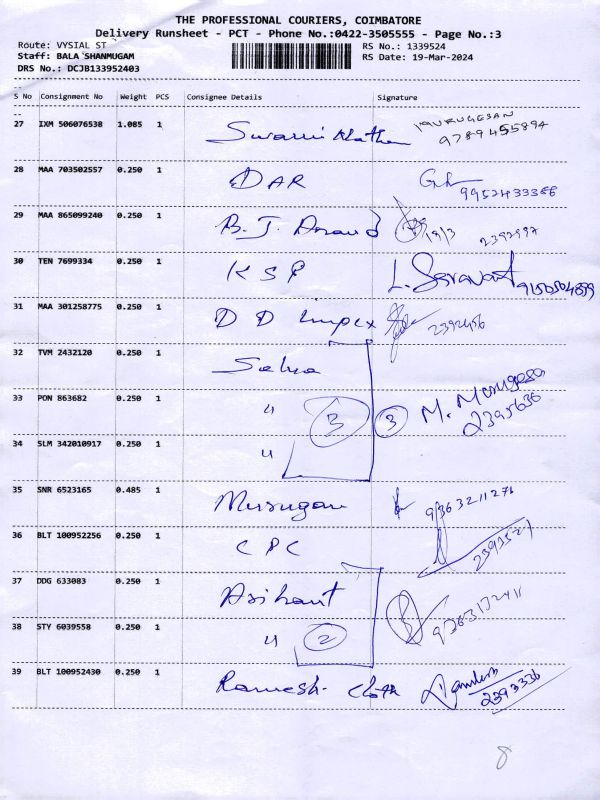 THE PROFESSIONAL COURIERS, COIMBATORE
Delivery Runsheet - PCT - Phone No.:0422-3505555 - Page No.:3
Route: VYSIAL ST RS No.: 1339524
Staff: BALA SHANMUGAM RS Date: 19-Mar-2024
DRS No.: DCJB133952403
S No Consignment No Weight PCS Consignee Details Signature
27 IXM 506076538 1.085 1 Swami Nathan MURUGESAN
9789455894
28 MAA 703502557 0.250 1 DAR
9952433386
29 MAA 865099240 0.250 1 B.J. Anand 19/3 2392997
30 TEN 7699334 0.250 1 KSP L. Saravan
31 MAA 301258775 0.250 1 D D Impex 2392456
32 TVM 2432120 0.250 1
33 PON 863682 0.250 1 " 3 3 M. Murugesa
2395636
34 SLM 342010917 0.250 1 "
35 SNR 6523165 0.485 1 Murugan 9363211276
36 BLT 100952256 0.250 1 CPC
37 DDG 633083 0.250 1 Arihant
38 STY 6039558 0.250 1 " 2
39 BLT 100952430 0.250 1 Ramesh Cloth
2393336
8